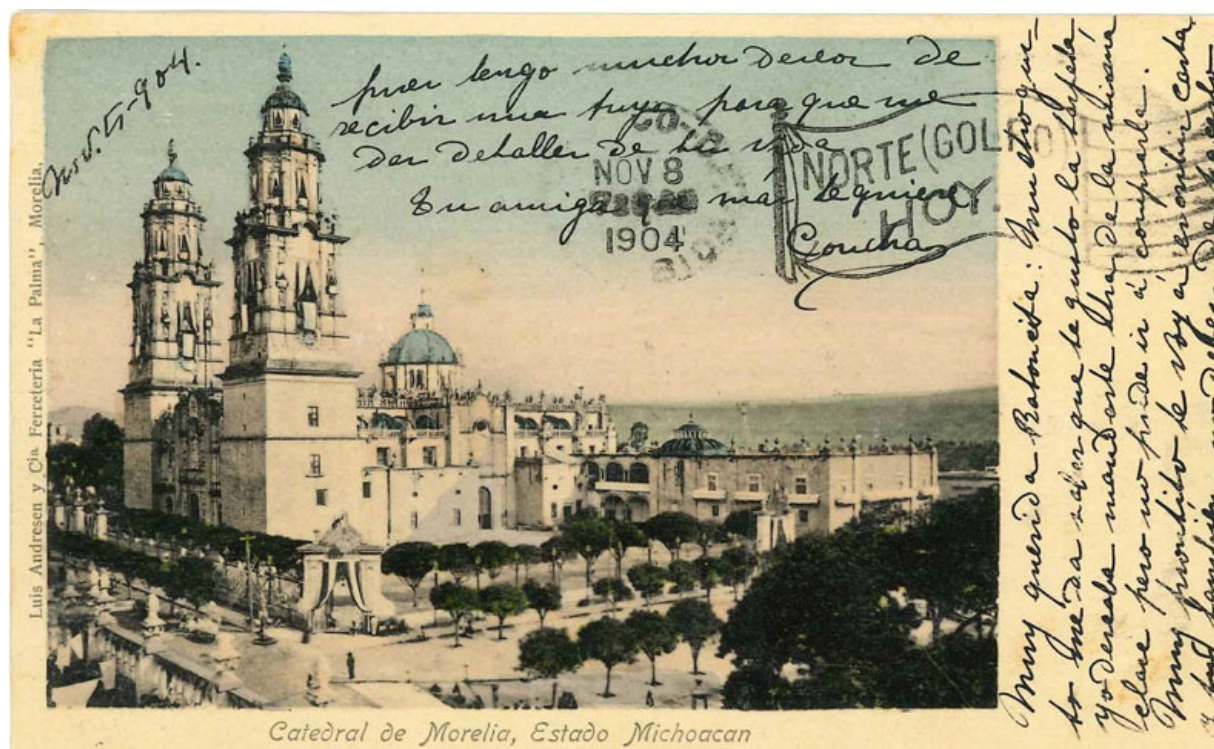 Nov. 5-904.
pues tengo muchos deseos de
recibir una tuya para que me
das detalles de tu vida
Tu amiga que más te quiere
Concha
NOV 8
1904
NORTE (GOLFO)
HOY.
Luis Andresen y Cia Ferreteria "La Palma", Morelia.
Catedral de Morelia, Estado Michoacan
Muy querida Ratoncita: Mucho gus-
to me da saber que te gusto la tarjeta,
yo deseaba mandarte otra de la misma
clase pero no pude ir á comprarla.
Muy prontito te voy á escribir carta
y tu también